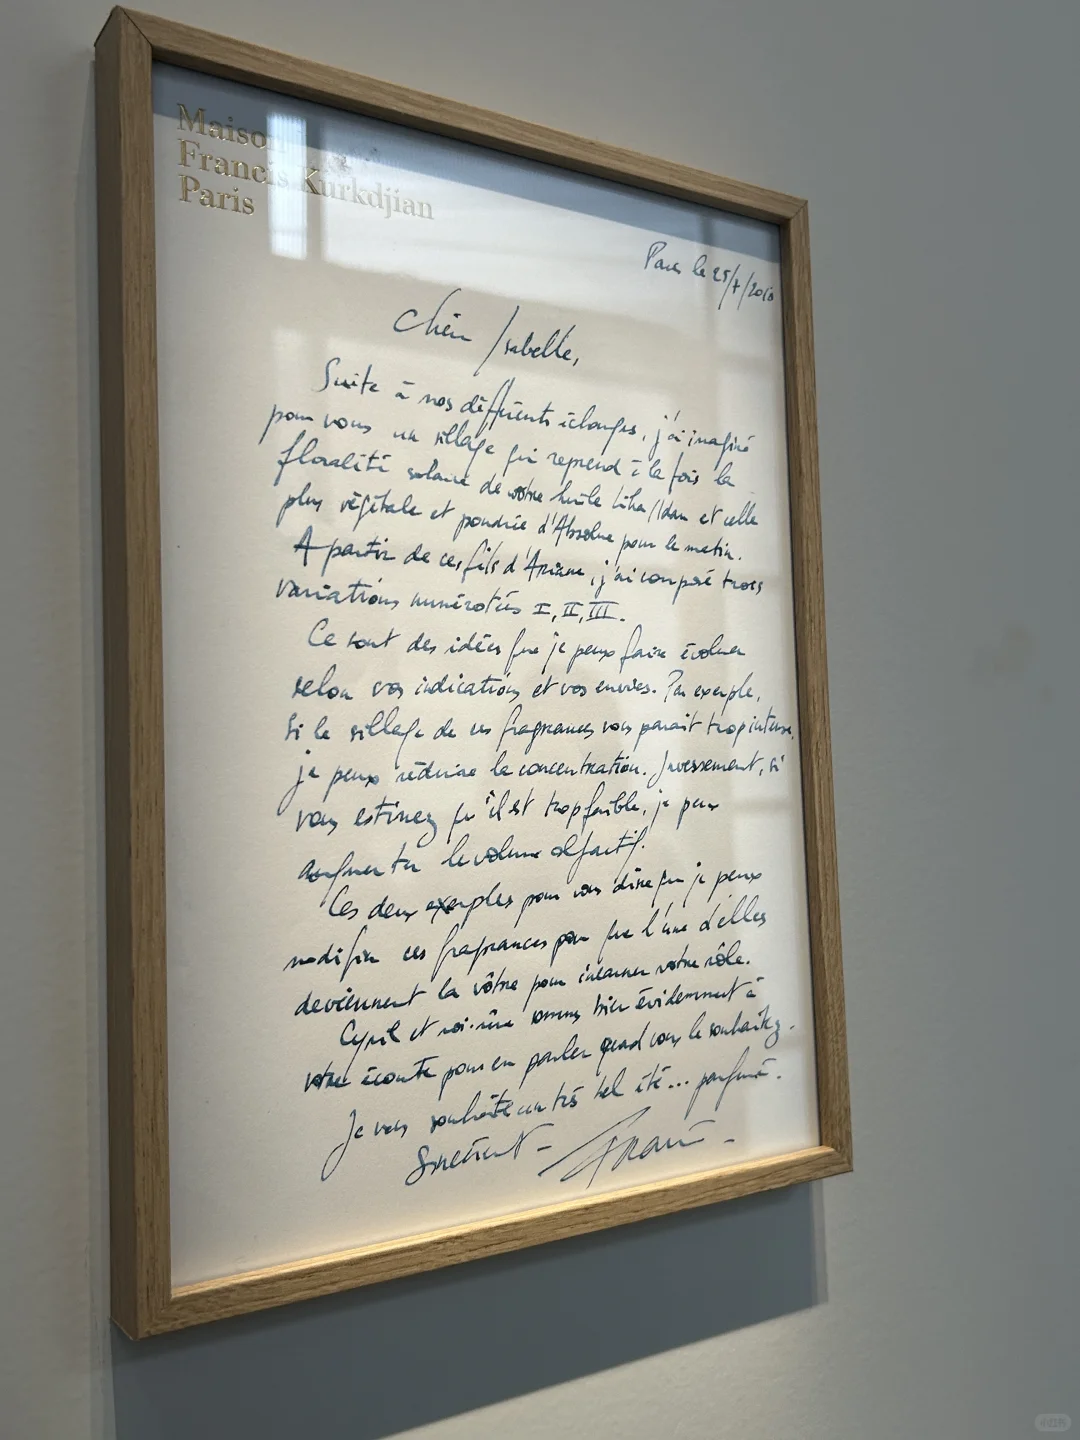 Maison
Francis Kurkdjian
Paris
Paris le 25/7/20
Chère Isabelle,
Suite à nos différents échanges, j'ai imaginé
pour vous un sillage qui reprend à la fois la
floralité solaire de votre huile Liha/Idan et celle
plus végétale et poudrée d'Absolue pour le matin.
A partir de ces fils d'Ariane, j'ai composé trois
variations numérotées I, II, III.
Ce sont des idées que je peux faire évoluer
selon vos indications et vos envies. Par exemple,
si le sillage de ces fragrances vous parait trop intense,
je peux réduire la concentration. Inversement, si
vous estimez qu'il est trop faible, je peux
augmenter le volume olfactif.
Ces deux exemples pour vous dire que je peux
modifier ces fragrances pour que l'une d'elles
deviennent la vôtre pour incarner votre rôle.
Cyril et moi-même sommes bien évidemment à
votre écoute pour en parler quand vous le souhaitez.
Je vous souhaite un très bel été... parfumé.
Sincèrement -